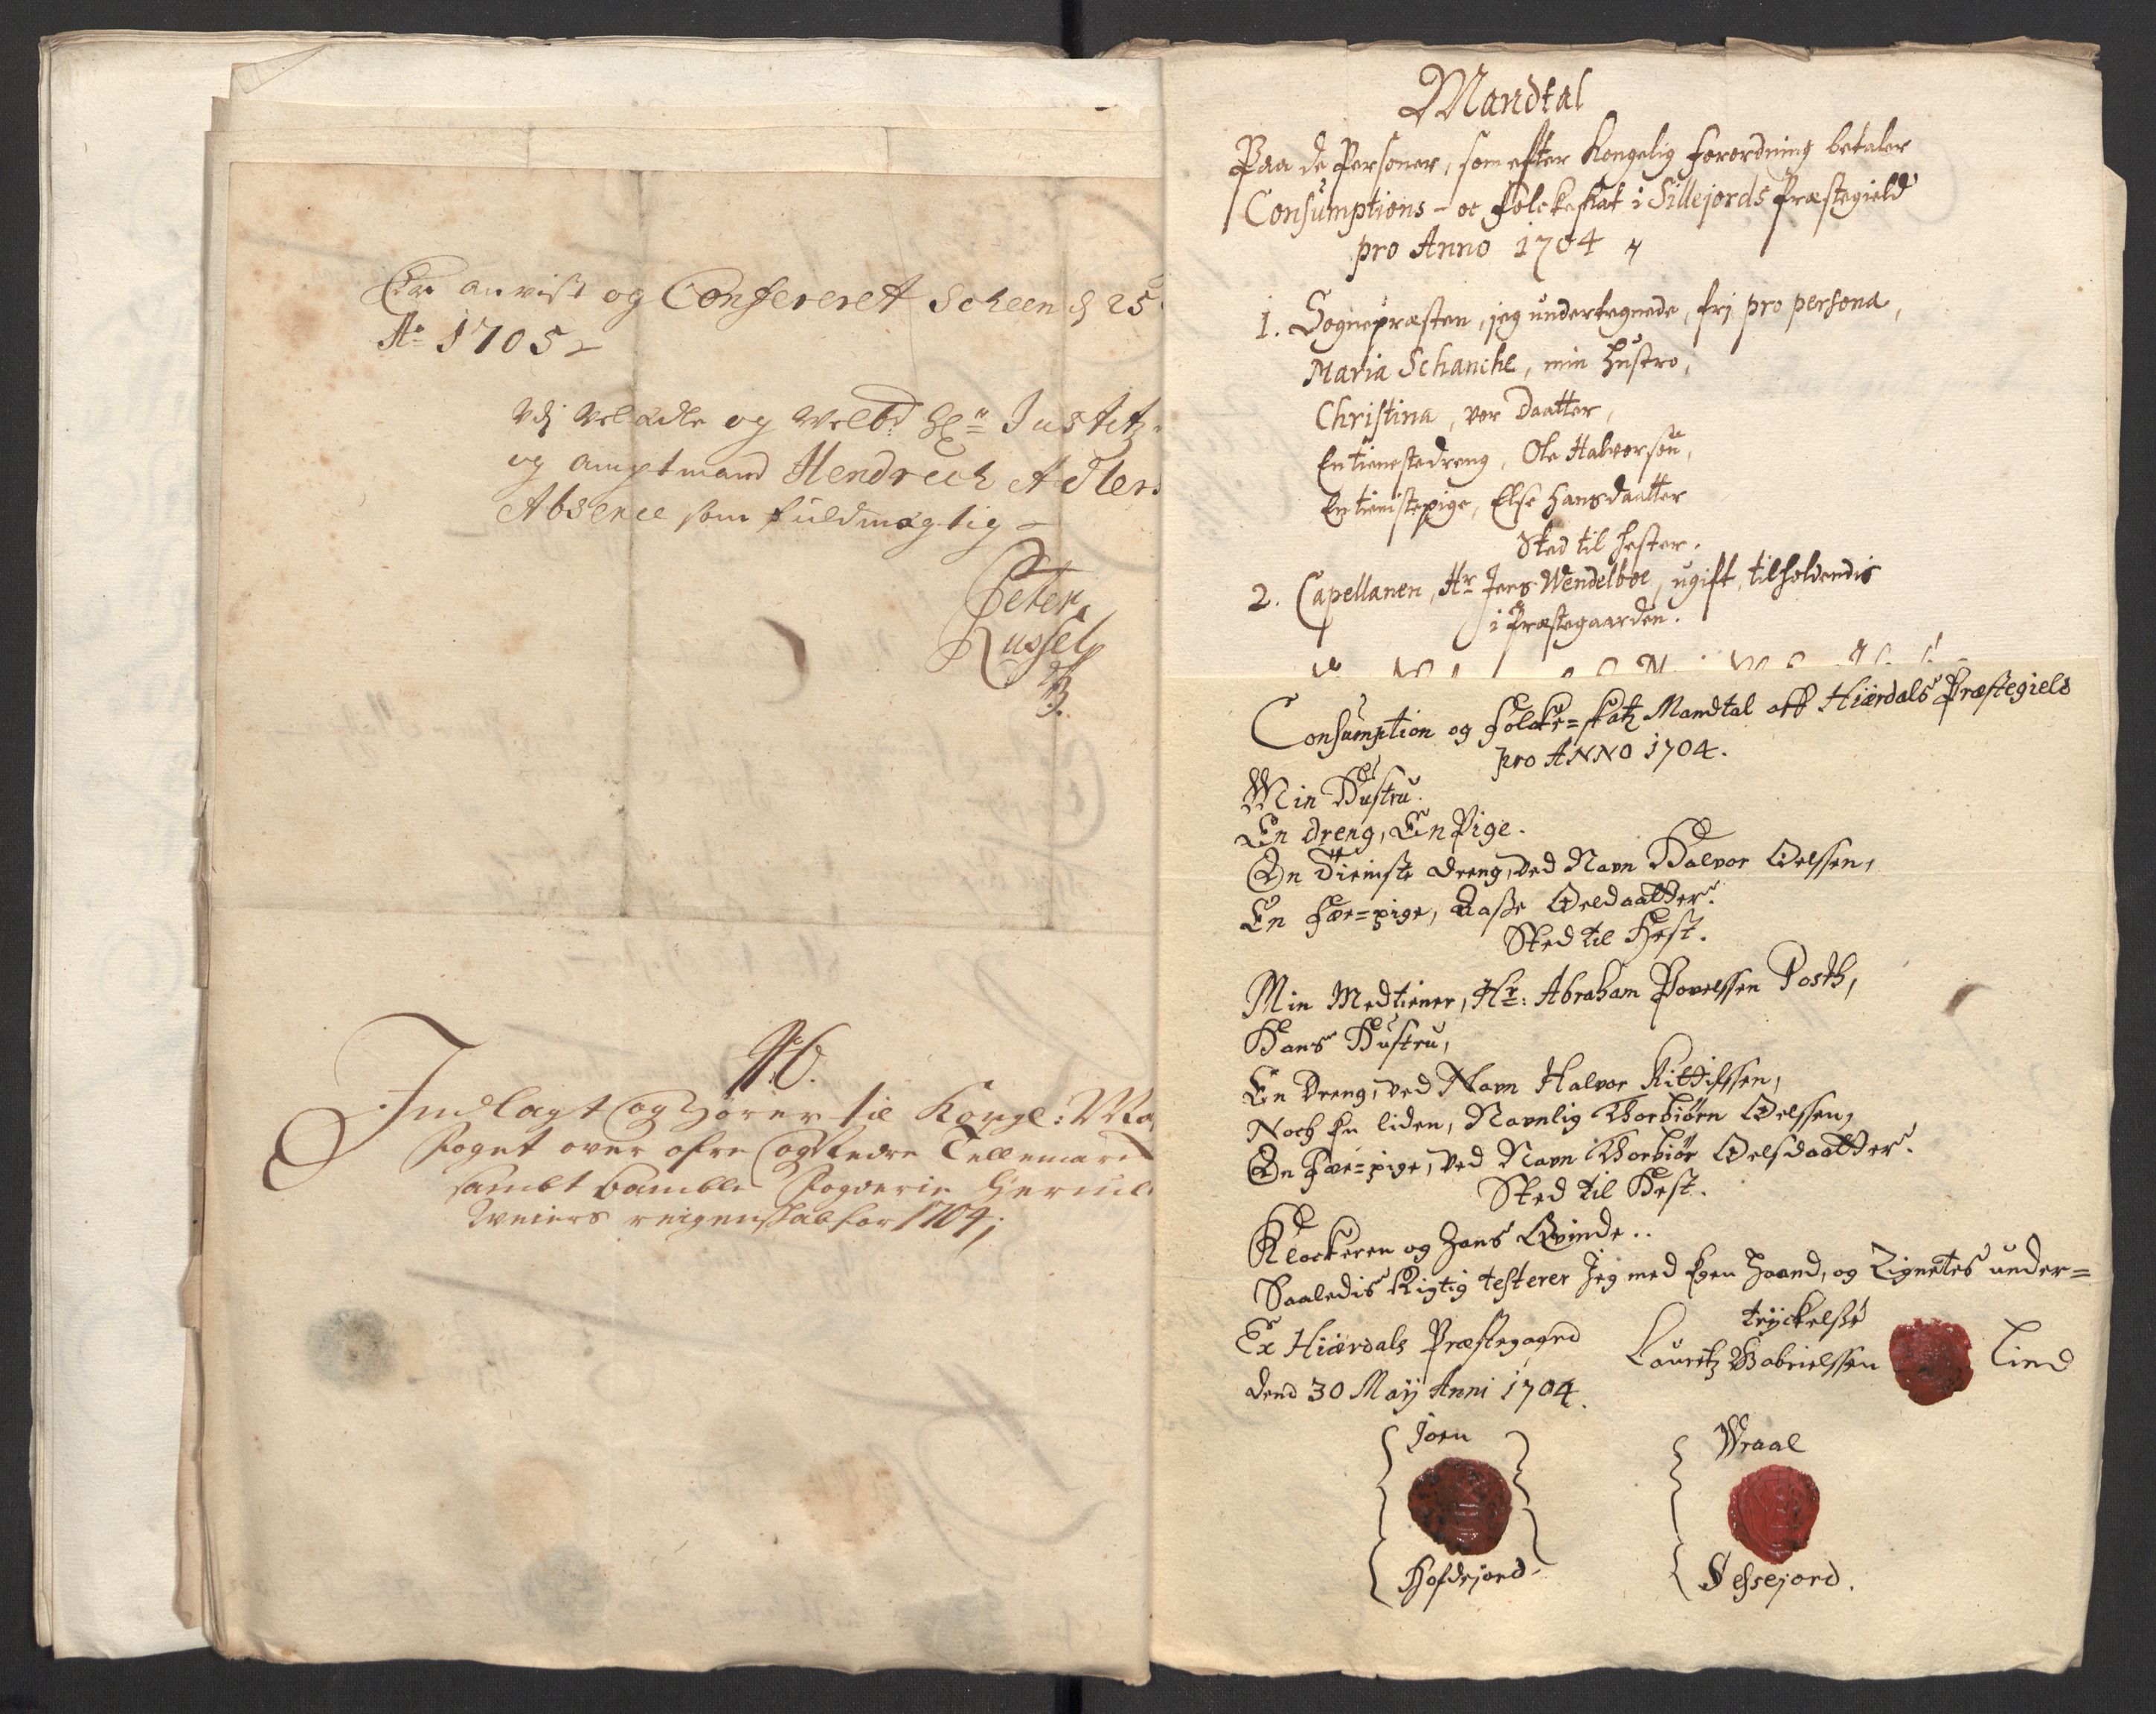 Er anvist og Confereret Scheen d 25
Ao 1705
Udj Vel Ædle og Velbd Hr Justitz
og amptmand Hendrech Adlers
Absence som fuldmægtig
Peter
Russel
No.
Indlagt og hører til Kongl: Ma
foget over øfre og Nedre Tellemarc
sambt Bamble fogderie
Weiers reigenskab for 1704;
Mandtal
Paa de Personer, som efter Kongelig forordning betaler
Consumptions- oc folckeskat i Sillejords Præstegield
pro Anno 1704
1. Sognepræsten, jeg undertegnede, fri pro persona,
Maria Schanche, min hustro,
Christina, vor Daatter,
En tienestedreng, Ole Halvorsøn,
En tienistepige, Else Hansdaatter
Sted til hester.
2. Capellanen, Hr Jens Wendelboe, ugift, tilholdendis
i Præstegaarden.
Consumption og Folcke=skatz Mandtal aff Hiærdals Præstegield
pro ANNO 1704.
Min Hustru.
En dreng, En Pige.
En Tieniste dreng, ved Navn Halvor Oelssen,
En Fæe=pige, Aaße Oelsdaatter.
Sted til Hest.
Min Medtiener, Hr: Abraham Povelssen Posth,
Hans Hustru,
En Dreng, ved Navn Halvor Kittilssen,
Noch En liden, Navnlig Thorbiørn Oelssen,
En Fæe=pige, ved Navn Thorbiør Oelsdaatter.
Sted til Hest.
Klockeren og hans Qvinde..
Saaledis Rigtig testerer Jeg med Egen haand, og Zignetes under=
tryckelße
Ex Hiærdals Præstegaard
Lauritz Gabrielssen Lind
dend 30 Maij Anni 1704.
Joen
Hofdejord
Wraal
Sessejord.